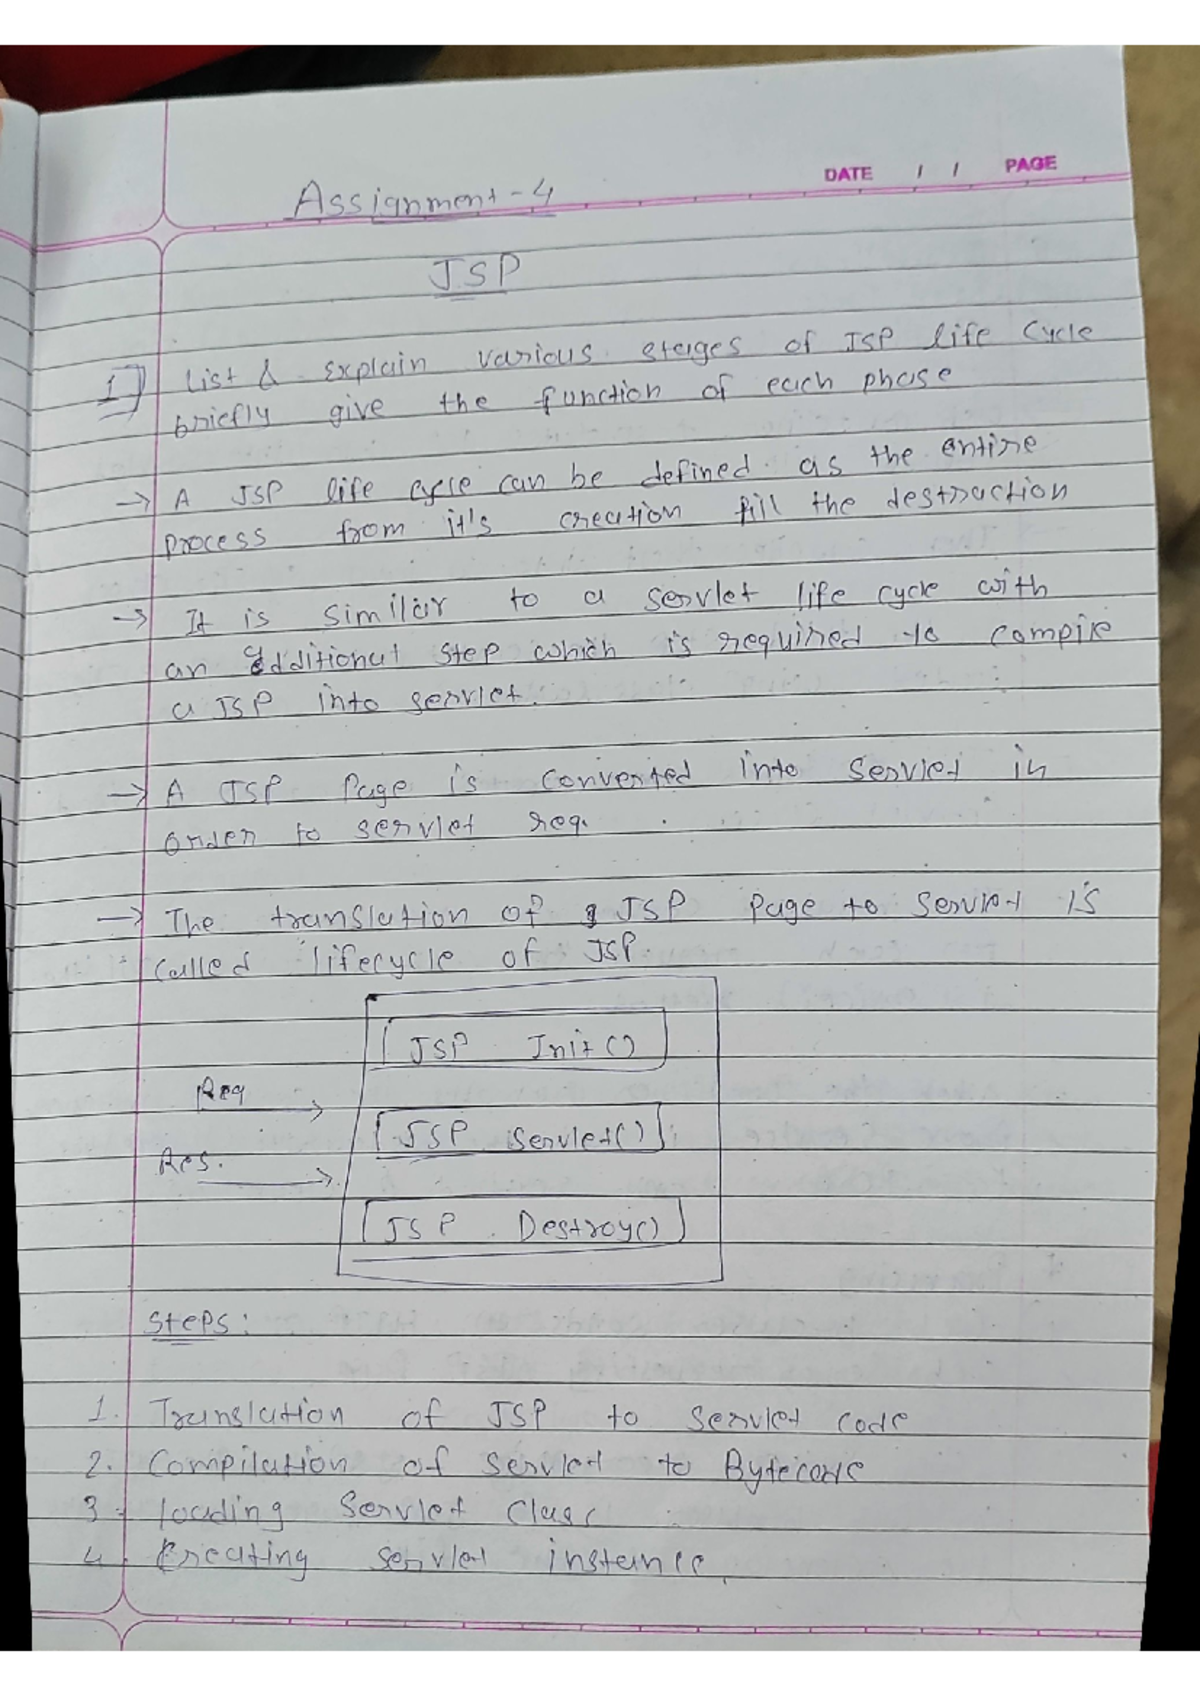 DATE / / PAGE
Assignment - 4
JSP
1] List & Explain various stages of JSP life Cycle
briefly give the function of each phase
→ A JSP life cycle can be defined as the entire
process from it's creation till the destruction
→ It is similar to a servlet life cycle with
an additional step which is required to compile
a JSP into servlet.
→ A JSP Page is converted into servlet in
order to servlet req.
→ The translation of JSP page to servlet is
called lifecycle of JSP.
JSP Init()
Req
JSP Servlet()
Res.
JSP Destroy()
Steps:
1. Translation of JSP to servlet code
2. Compilation of servlet to Bytecode
3. loading servlet class
4. Creating servlet instance